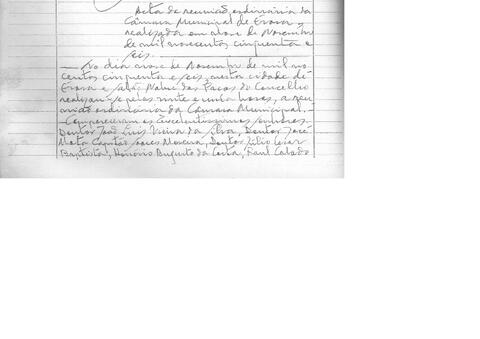 Acta da reunião ordinaria da
Câmara Municipal de Evora,
realizada em de Novembro
de mil novecentos cinquenta e
seis.
— No dia de Novembro de mil no-
vecentos cinquenta e seis, nesta cidade de
Evora e Salão Nobre dos Paços do Concelho
realizou-se pelas vinte e uma horas, a reu-
nião ordinaria da Câmara Municipal. —
Compareceram os Excelentissimos senhores
Doutor João Luis Vieira da Silva, Doutor José
Mata Capitão Moreira, Doutor Júlio Cesar
Baptista, Honorio Augusto da Costa, Raul Calado